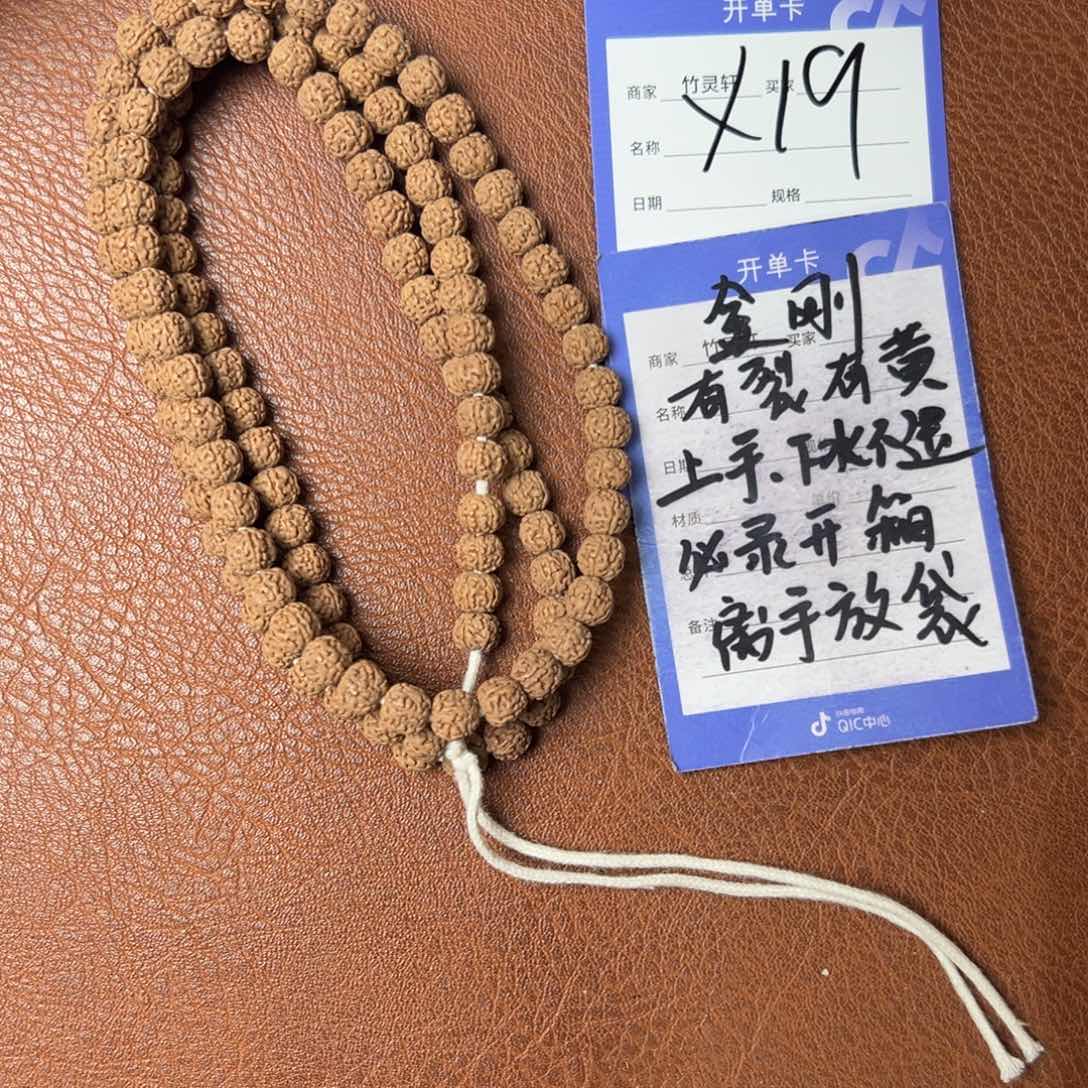 开单卡
商家 竹灵轩 买家
X19
名称
日期 规格
开单卡
金刚
商家 竹 买家
有裂有黄
名称
上手、下水不退
日期
材质 单价
必录开箱
备注
离手放袋
抖音电商
QIC中心